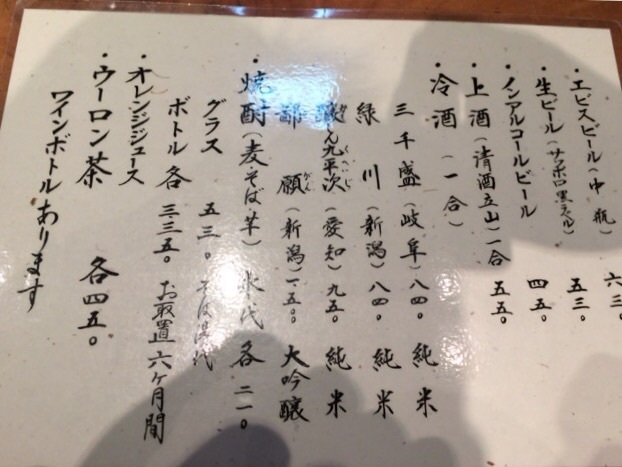 ・エビスビール(中瓶) 六三〇
・生ビール(サッポロ黒ラベル) 五三〇
・ノンアルコールビール 四五〇
・上酒(清酒立山)一合 五五〇
・冷酒(一合)
三千盛(岐阜)八四〇 純米
緑川(新潟)八四〇 純米
醸し人九平次(愛知)九五〇 純米
願(新潟)一五〇 大吟醸
・焼酎(麦そば芋) 氷代各二一〇
グラス 五三〇 そば湯代
ボトル各 三三五〇 お取置六ケ月間
・オレンジジュース
・ウーロン茶 各四五〇
ワインボトルあります